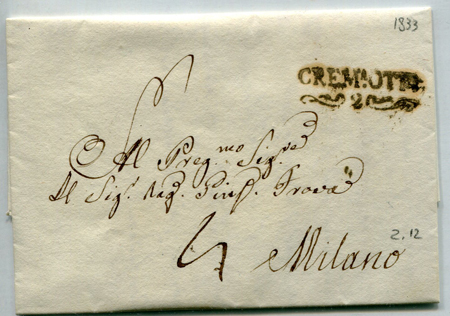 1833
CREM.A OTT.E
2
Al Preg.mo Sig.re
Il Sig.r Rag. Trova
Milano
2.12